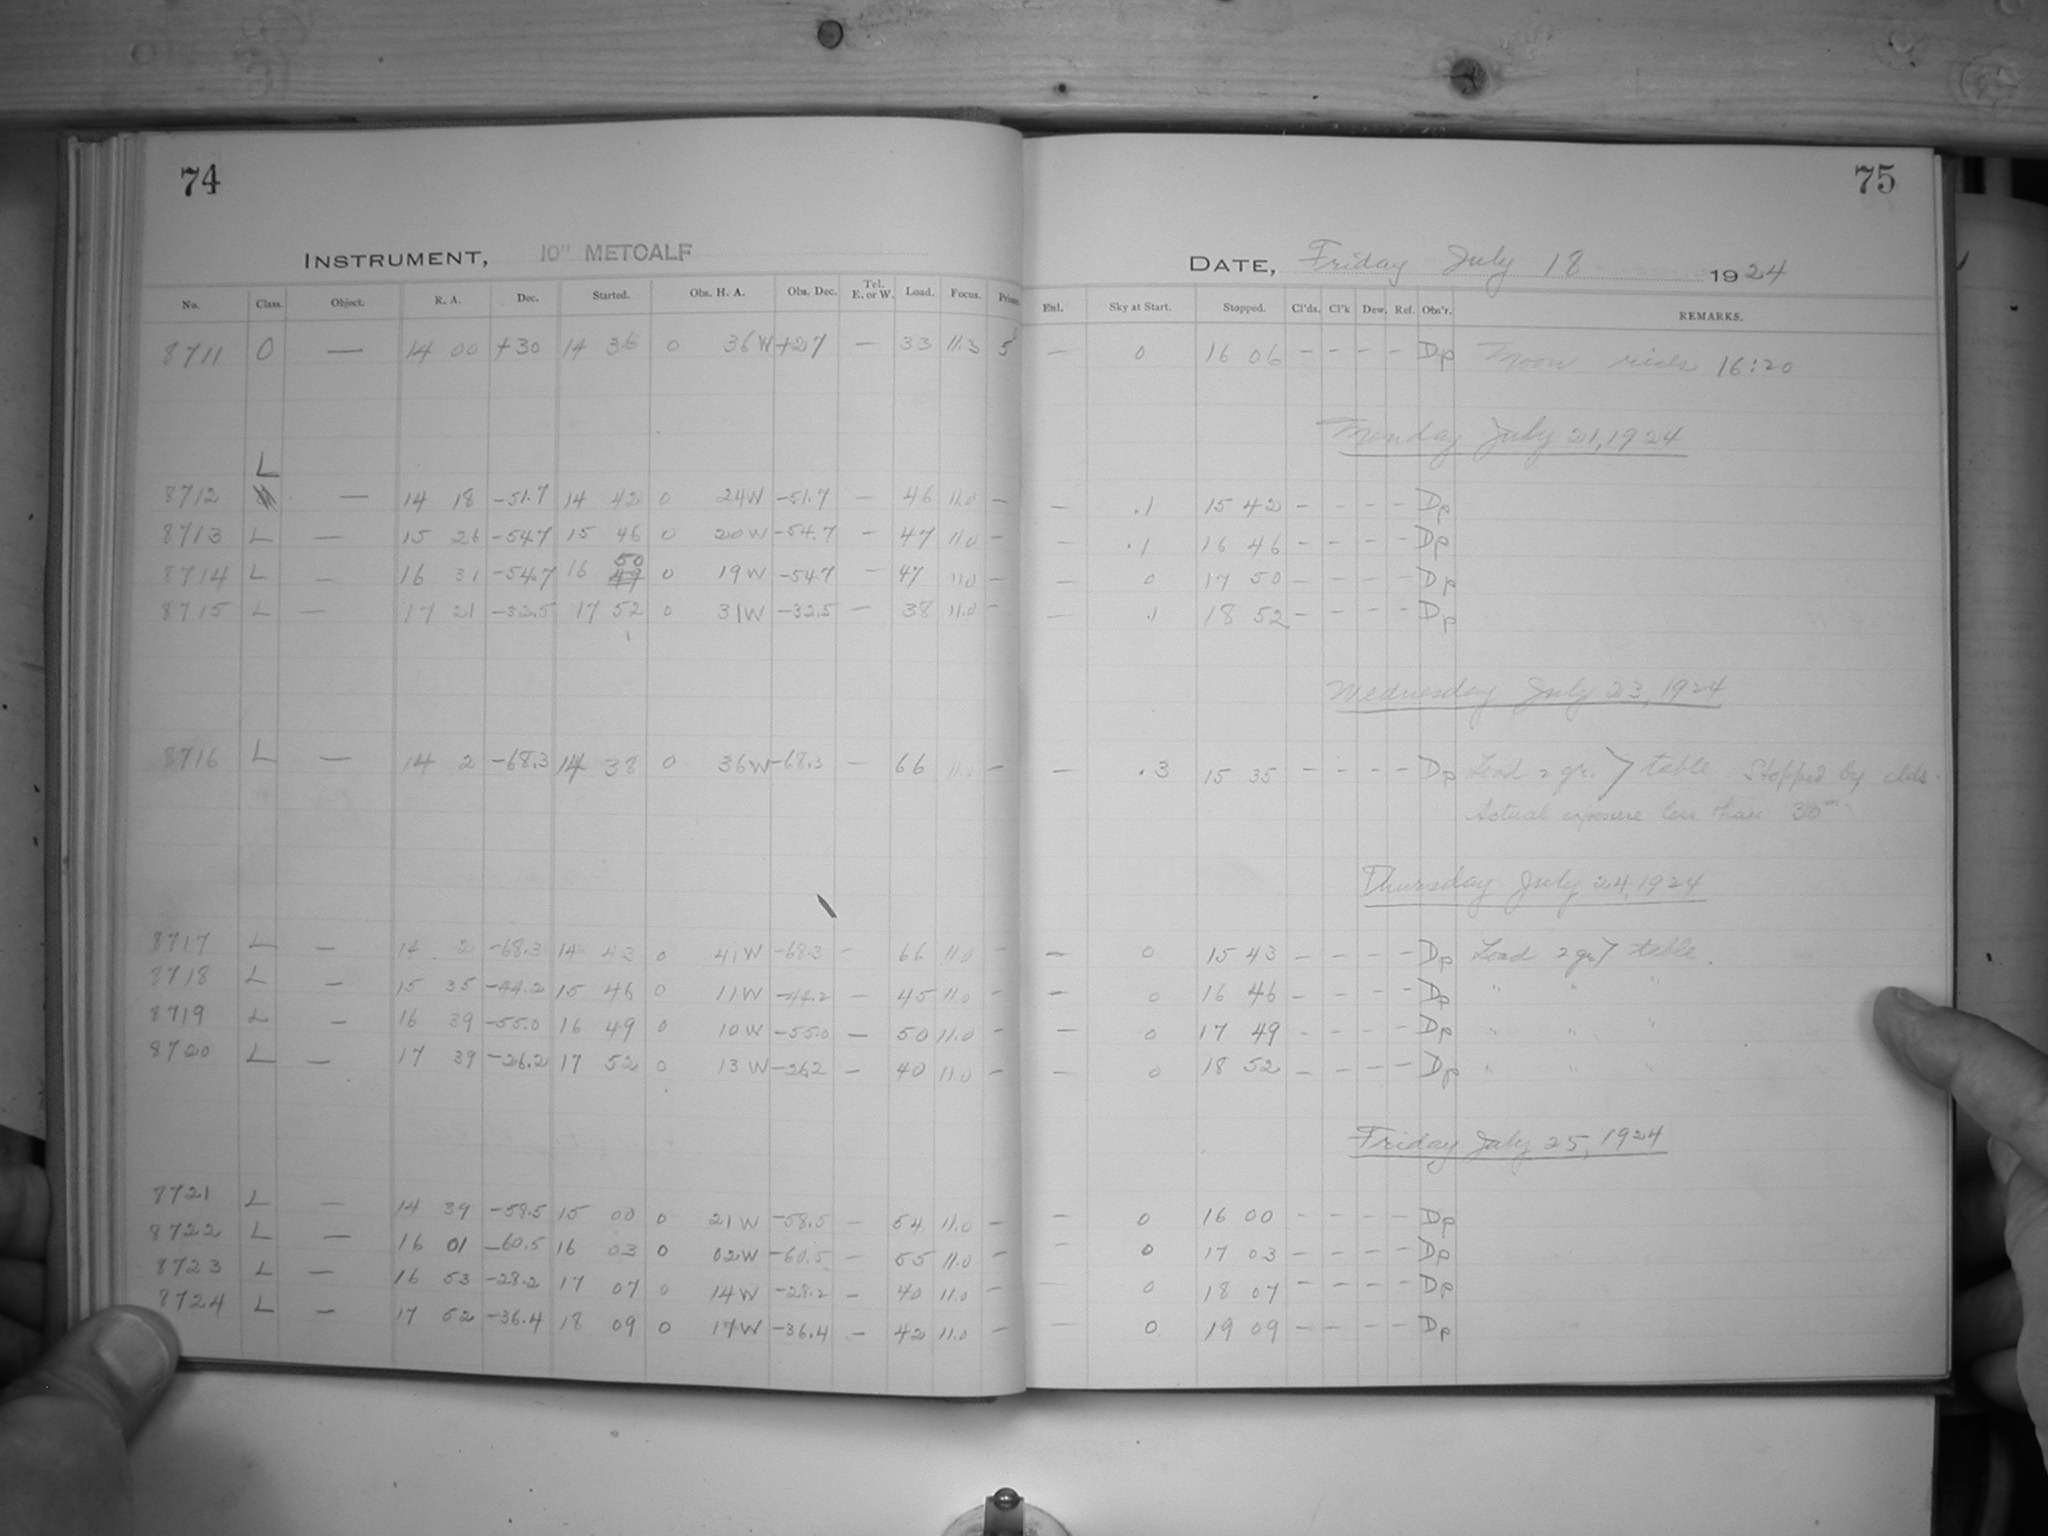 74
INSTRUMENT, 10" METCALF
No. Class. Object. R. A. Dec. Started. Obs. H. A. Obs. Dec. Tel. E. or W. Load. Focus.
8711 O — 14 00 +30 14 36 0 36W +27 — 33 11.3
L
8712 — 14 18 -51.7 14 42 0 24W -51.7 — 46 11.0 —
8713 L — 15 26 -54.7 15 46 0 20W -54.7 — 47 11.0 —
50
8714 L — 16 31 -54.7 16 49 0 19W -54.7 — 47 11.0 —
8715 L — 17 21 -32.5 17 52 0 31W -32.5 — 38 11.0 —
8716 L — 14 2 -68.3 14 38 0 36W -68.3 — 66 11.0 —
8717 L — 14 2 -68.3 14 43 0 41W -68.3 — 66 11.0 —
8718 L — 15 35 -44.2 15 46 0 11W -44.2 — 45 11.0 —
8719 L — 16 39 -55.0 16 49 0 10W -55.0 — 50 11.0 —
8720 L — 17 39 -26.2 17 52 0 13W -26.2 — 40 11.0 —
8721 L — 14 39 -58.5 15 00 0 21W -58.5 — 54 11.0 —
8722 L — 16 01 -60.5 16 03 0 02W -60.5 — 55 11.0 —
8723 L — 16 53 -28.2 17 07 0 14W -28.2 — 40 11.0 —
8724 L — 17 52 -36.4 18 09 0 17W -36.4 — 42 11.0 —
75
DATE, Friday July 18 1924
Enl. Sky at Start. Stopped. Cl'ds. Cl'k Dew. Ref. Obs'r. REMARKS.
— 0 16 06 — — — — Dp Moon rises 16:20
Monday July 21, 1924
— .1 15 42 — — — — Dp
— .1 16 46 — — — — Dp
— 0 17 50 — — — — Dp
— .1 18 52 — — — — Dp
Wednesday July 23, 1924
— .3 15 35 — — — — Dp Load 2 gr. > table Stopped by clds.
Actual exposure less than 30m
Thursday July 24, 1924
— 0 15 43 — — — — Dp Load 2 gr > table.
— 0 16 46 — — — — Dp " " "
— 0 17 49 — — — — Dp " " "
— 0 18 52 — — — — Dp " " "
Friday July 25, 1924
— 0 16 00 — — — — Dp
— 0 17 03 — — — — Dp
— 0 18 07 — — — — Dp
— 0 19 09 — — — — Dp